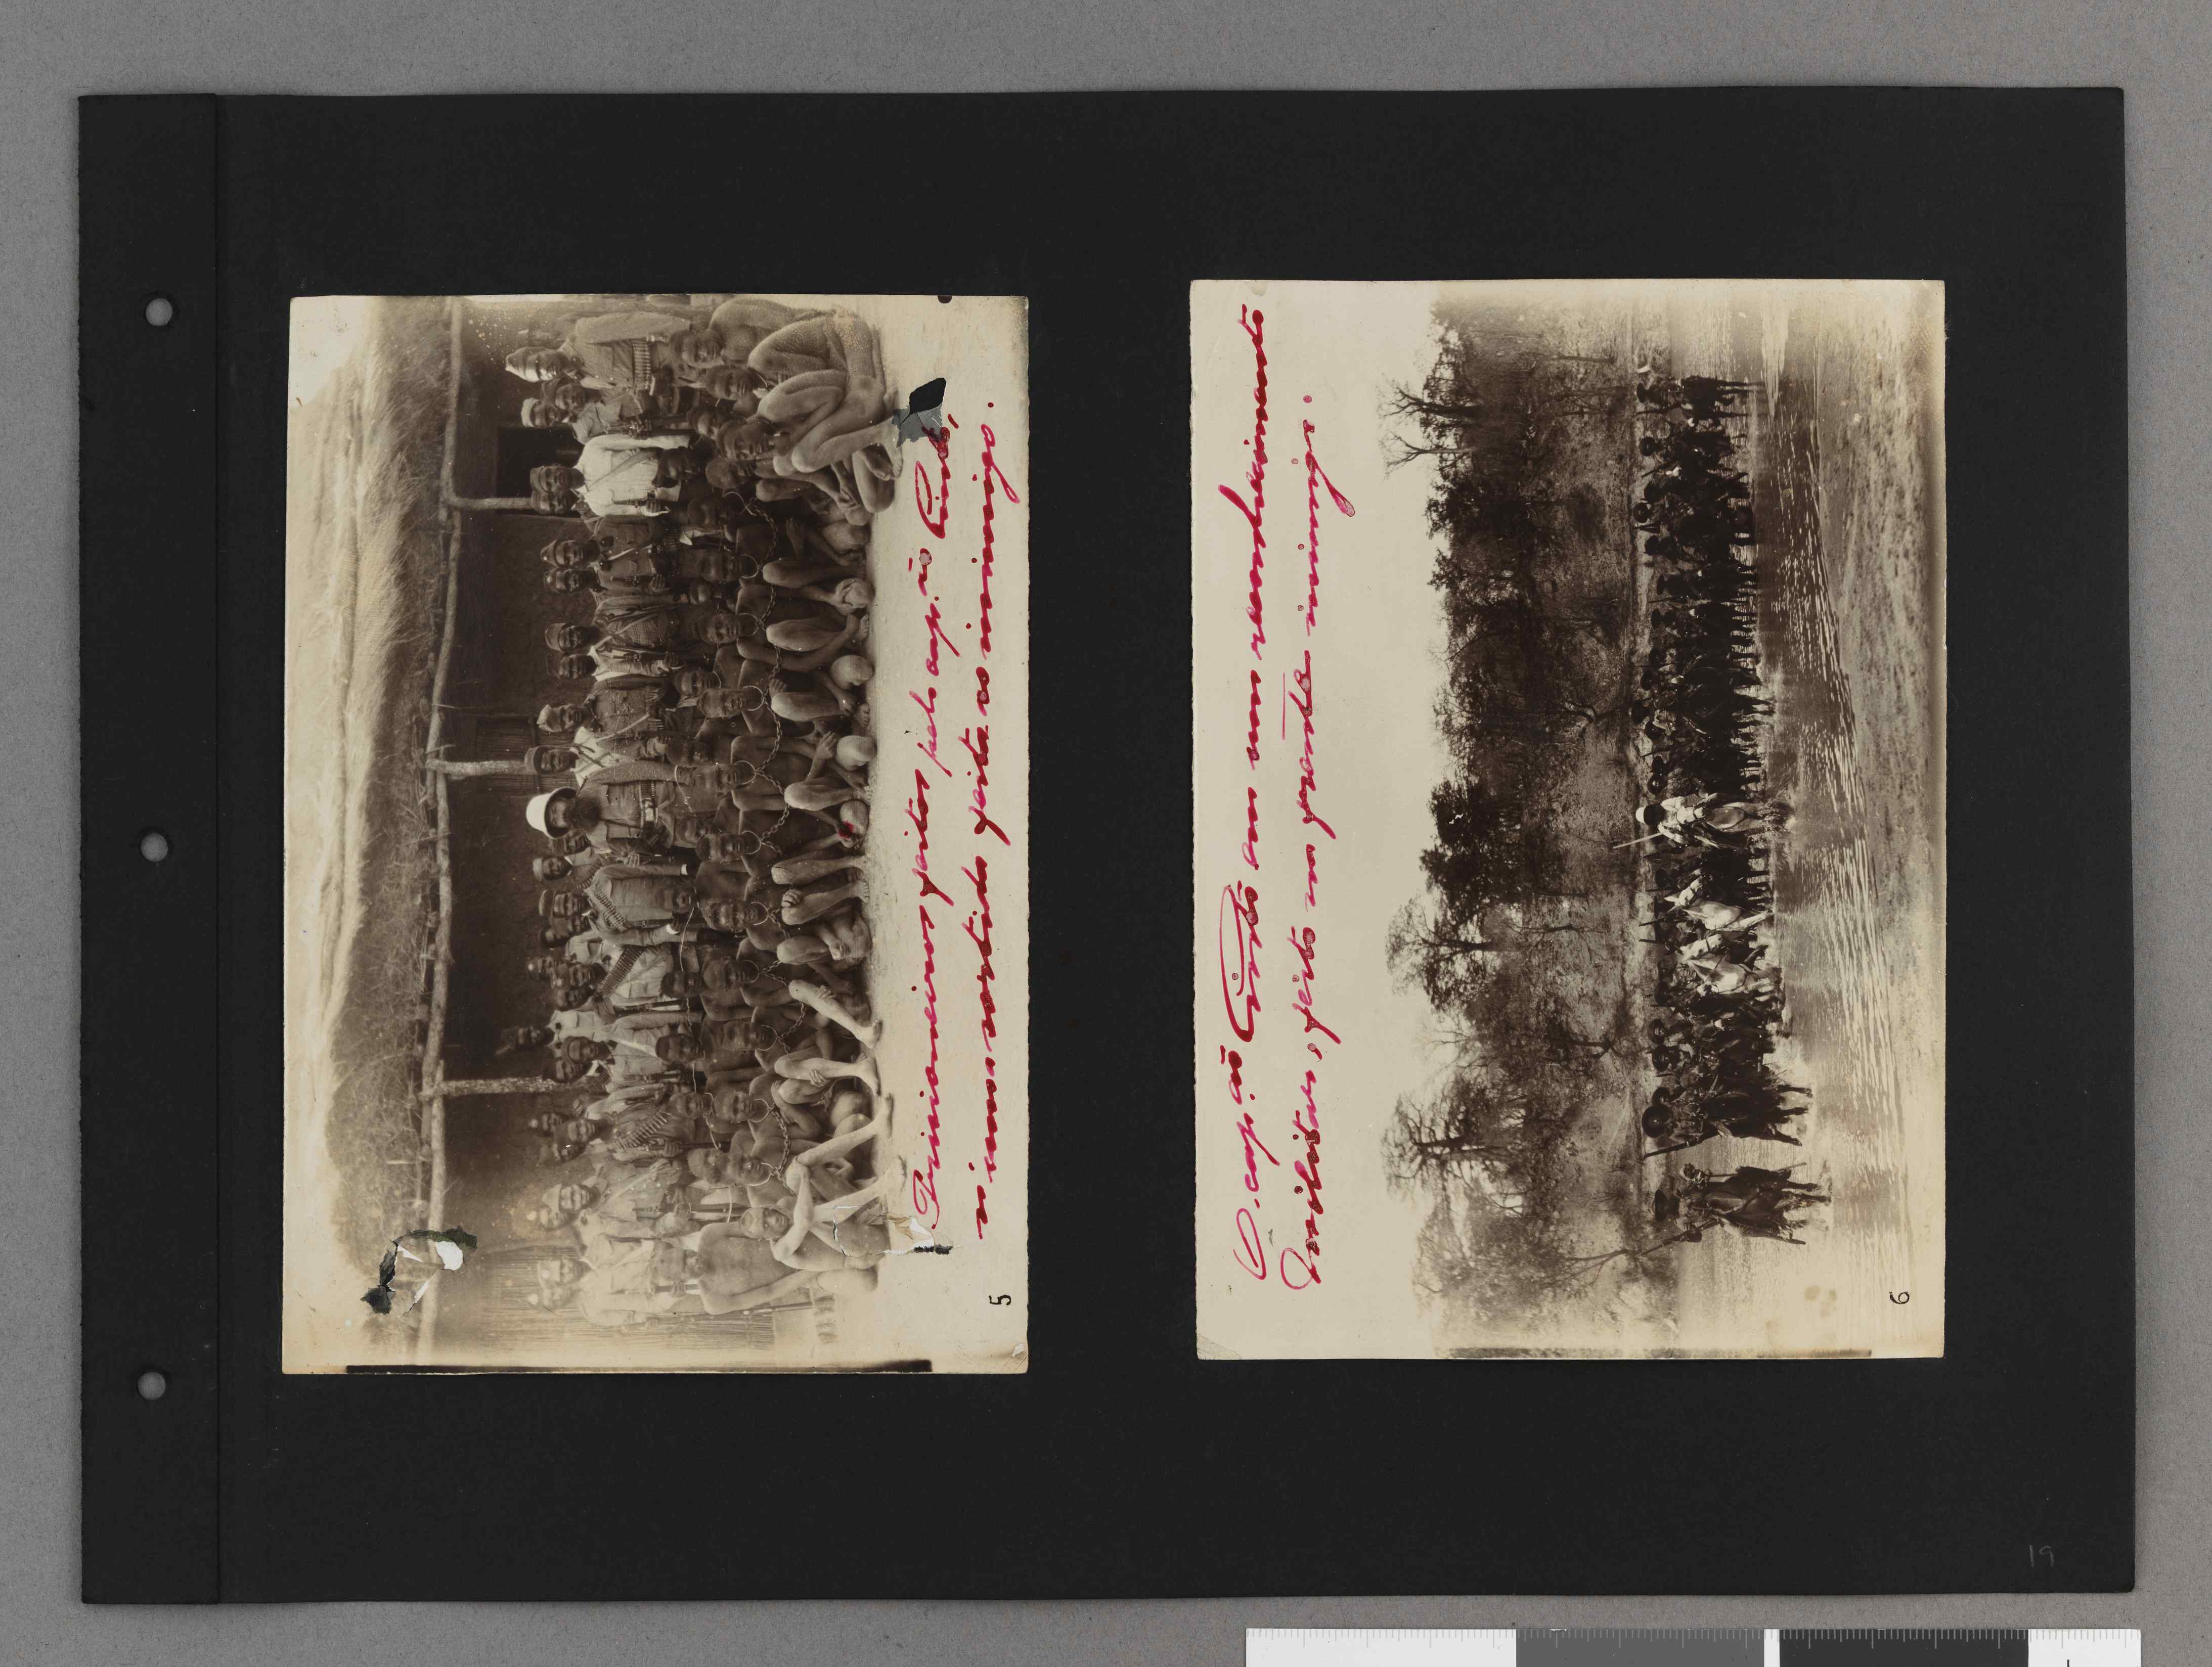 Prisioneiros feitos pelo cap.ão Pinto,
n'uma sortida feita ao inimigo.
5
O cap.ão Pinto em um reconhecimento
militar, feito na frente inimiga.
6
19